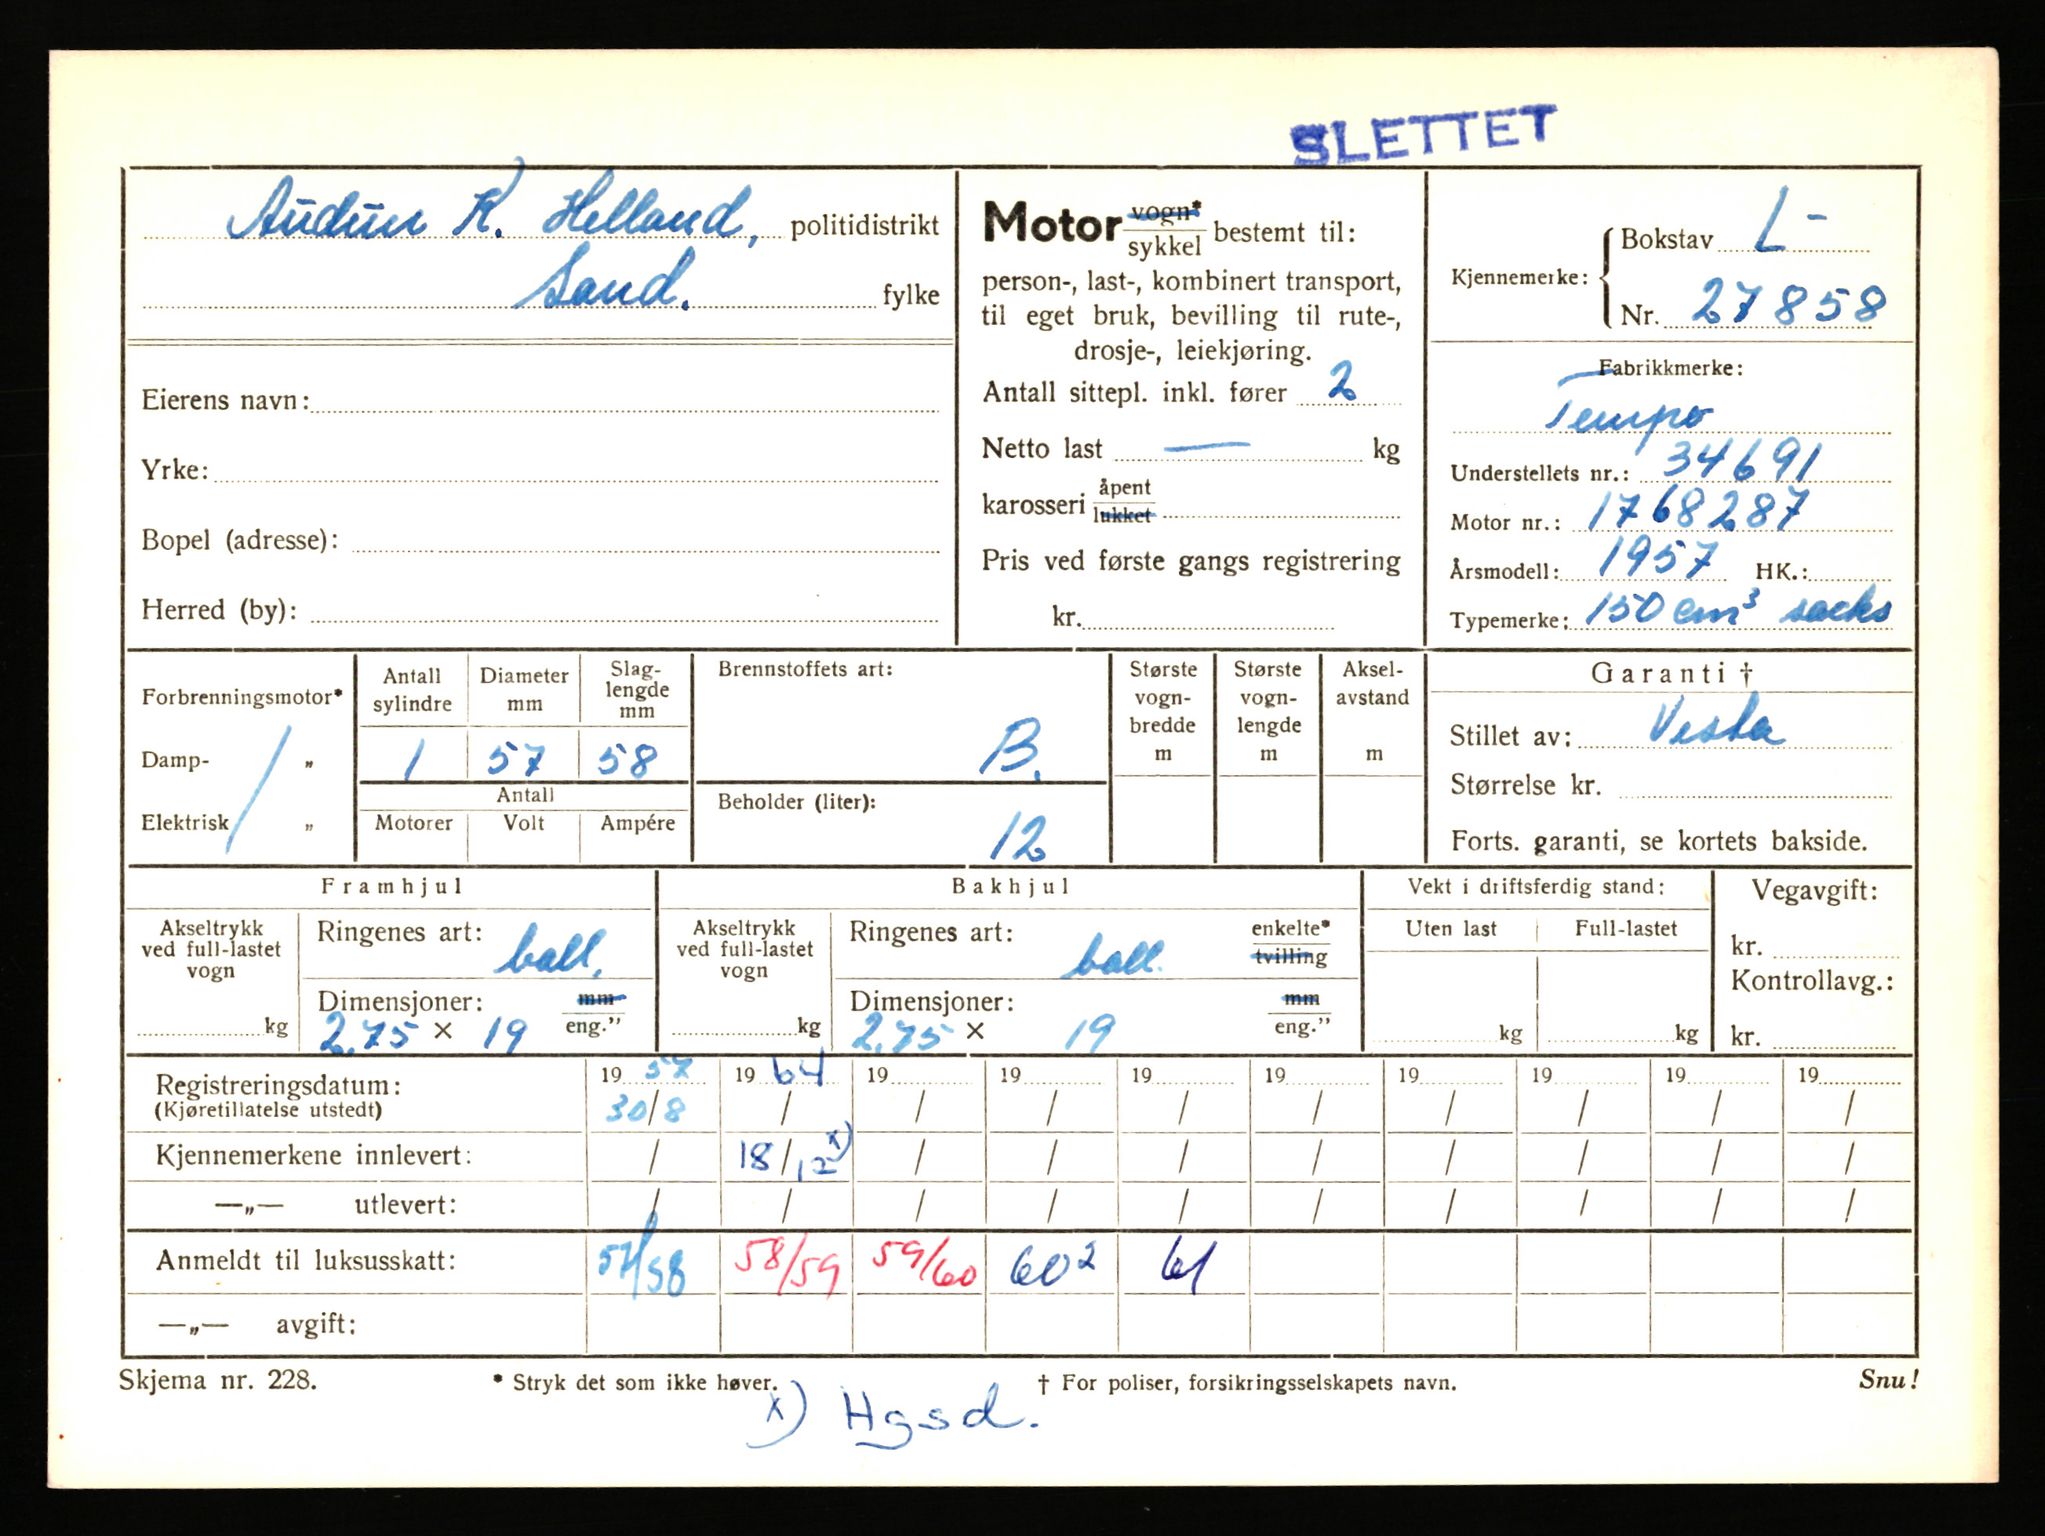 SLETTET
Audun K. Helland, politidistrikt
Sand. fylke
Eierens navn:
Yrke:
Bopel (adresse):
Herred (by):
Motor vogn* / sykkel bestemt til:
person-, last-, kombinert transport,
til eget bruk, bevilling til rute-,
drosje-, leiekjøring.
Antall sittepl. inkl. fører 2
Netto last — kg
karosseri åpent / lukket
Pris ved første gangs registrering
kr.
Kjennemerke: Bokstav L-
Nr. 27858
Fabrikkmerke:
Tempo
Understellets nr.: 34691
Motor nr.: 1768287
Årsmodell: 1957 HK.:
Typemerke: 150 cm³ sacks
Forbrenningsmotor*
Damp- „
Elektrisk „
Antall sylindre
Diameter mm
Slag-lengde mm
1 57 58
Antall
Motorer Volt Ampére
Brennstoffets art:
B.
Beholder (liter):
12
Største vogn-bredde m
Største vogn-lengde m
Aksel-avstand m
Garanti †
Stillet av: Vesta
Størrelse kr.
Forts. garanti, se kortets bakside.
Framhjul
Akseltrykk
ved full-lastet
vogn
kg
Ringenes art:
ball.
Dimensjoner: mm
2.75 × 19 eng."
Bakhjul
Akseltrykk
ved full-lastet
vogn
kg
Ringenes art: enkelte*
ball. tvilling
Dimensjoner: mm
2.75 × 19 eng."
Vekt i driftsferdig stand:
Uten last Full-lastet
kg kg
Vegavgift:
kr.
Kontrollavg.:
kr.
Registreringsdatum: 19 57 19 64 19 19 19 19 19 19 19 19
(Kjøretillatelse utstedt) 30/8 / / / / / / / / /
Kjennemerkene innlevert: / 18/12 x) / / / / / / / /
—„— utlevert: / / / / / / / / / /
Anmeldt til luksusskatt: 57/58 58/59 59/60 60² 61
—„— avgift:
Skjema nr. 228. * Stryk det som ikke høver. † For poliser, forsikringsselskapets navn. Snu!
x) Hgsd.